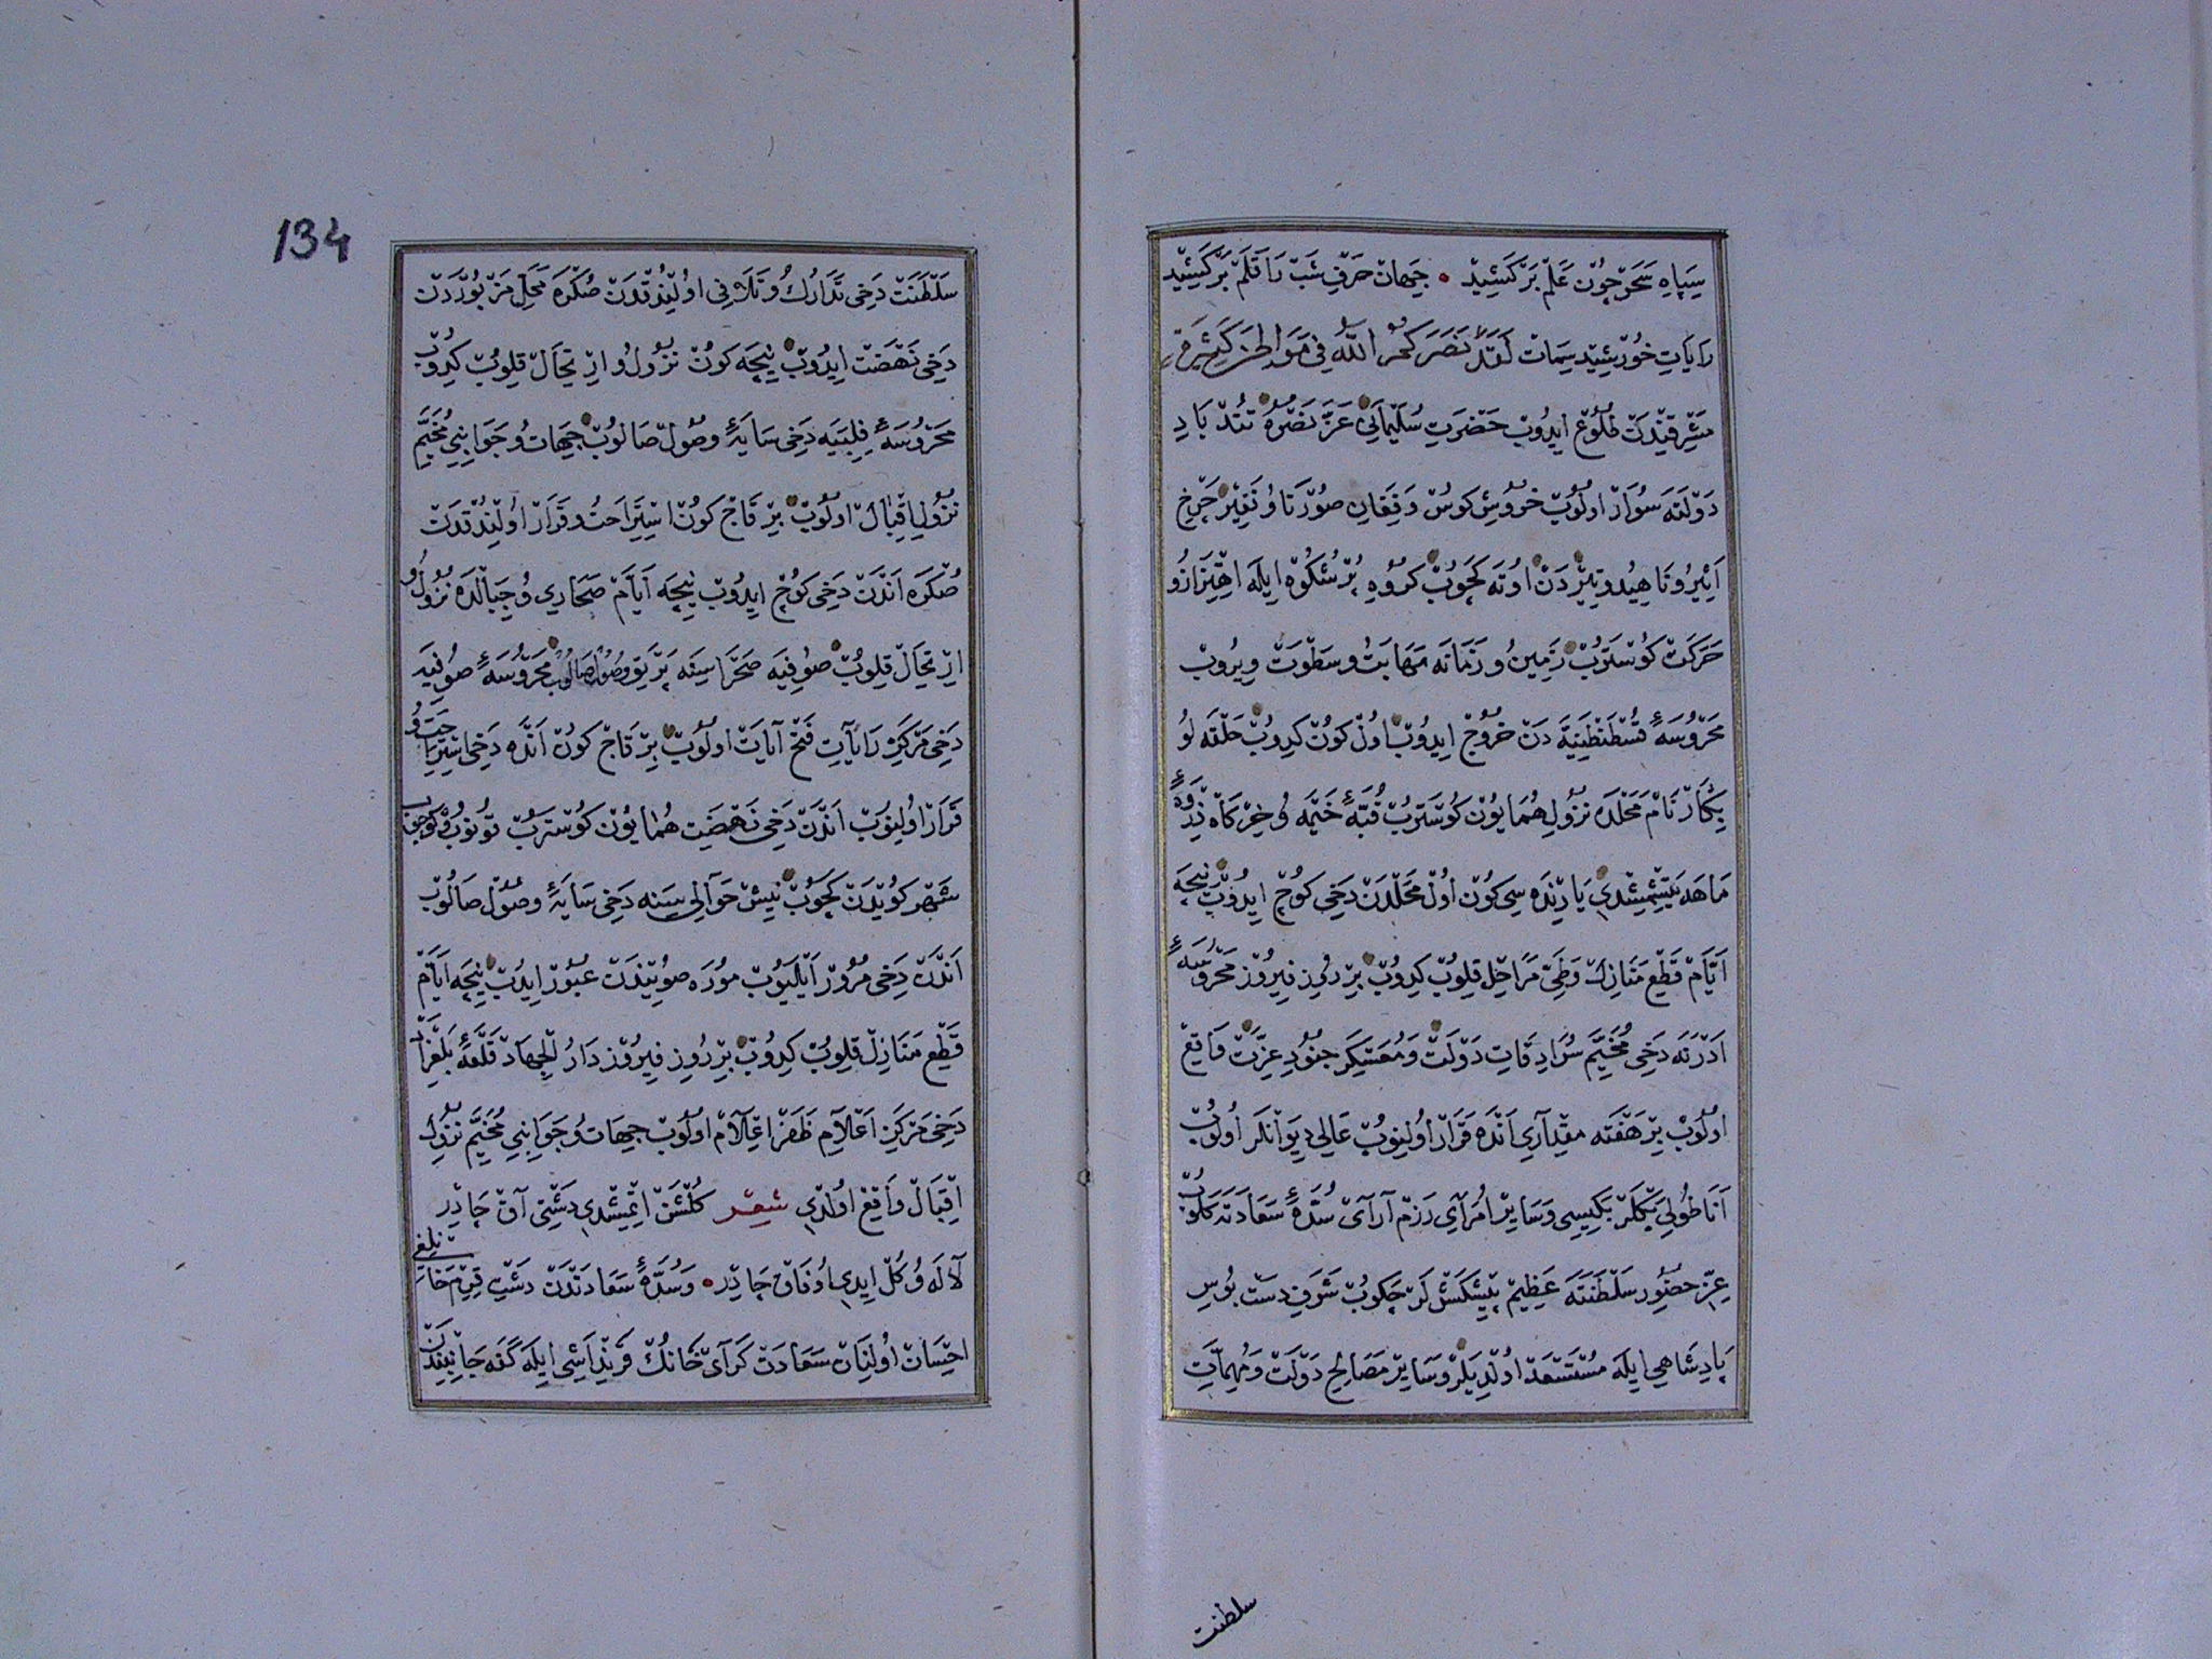 سِپَاهِ سَحَرْ چُونْ عَلَمْ بَرْ كَشِيدْ • جِهَانْ حَرْفِ شَبْ رَا قَلَمْ بَرْ كَشِيدْ
رَايَاتِ خُورْشِيدْ سِمَاتْ لَقَدْ نَصَرَكُمُ اللّٰهُ فِي مَوَاطِنَ كَثِيرَةٍ
مَشْرِقِنْدَنْ طُلُوعْ اِيدُوبْ حَضْرَتِ سُلَيْمَانِي عَزَّ نَصْرُهُ تُنْدْ بَادِ
دَوْلَتَه سُوَارْ اولُوبْ خُرُوشِ كوسْ وَفِغَانِ صُورْنَا وُ نَفِيرْ چَرْخِ
اَثِيرُ وَنَاهِيدُ وتِيرْدَنْ اوتَه كَچُوبْ كُرُوهِ پُرْشُكُوهْ اِيلَه اِهْتِزَازُ و
حَرَكَتْ كوسْتَرُبْ زَمِينُ و زَمَانَه مَهَابَتُ وسَطْوَتْ وِيرُوبْ
مَحْرُوسَۀ قُسْطَنْطِنِيَّه دَنْ خُرُوجْ اِيدُوبْ اولْ كونْ كِيدُوبْ حَلْقَه لُو
پِكَارْ نَامْ مَحَلْدَه نُزُولِ هُمَايُونْ كُوسْتَرُبْ قُبَّۀ خَيْمَه وُ خِرْكَاهْ ذِرْوَۀ
مَاهَه يَتِشْمِشْدِي يَارِنْدَه سِي كُونْ اُولْ مَحَلْدَنْ دَخِي كوچْ اِيدُوبْ نِيچَه
اَيَّامْ قَطْعِ مَنَازِلْ وَطَيِّ مَرَاحِلْ قِلُوبْ كِيدُوبْ بِرْ رُوزِ فِيرُوزْ مَحْرُوسَۀ
اَدْرَنَه دَخِي مُخَيَّمِ سُرَادِقَاتِ دَوْلَتْ وَمُعَسْكَرِ جُنُودِ عِزَّتْ وَاقِعْ
اولُوبْ بِرْ هَفْتَه مِقْدَارِي اَنْدَه قَرَارْ اُولِنُوبْ عَالِي دِيوَانْلَرْ اُولُوبْ
اَنَاطُولِي بَكْلَرْبَكِيسِي وَسَايِرْ اُمَرَايِ رَزْمْ آرَايْ سُدَّۀ سَعَادَتَه كَلُوبْ
عِزِّ حُضُورِ سَلْطَنَتَه عَظِيمْ پِيشْكَشْلَرْ چَكُوبْ شَرَفِ دَسْتْ بُوسِ
پَادِشَاهِي اِيلَه مُسْتَسْعَدْ اُولْدِيلَرْ وَسَايِرْ مَصَالِحِ دَوْلَتْ وَمُهِمَّاتِ
سلطنت
134
سَلْطَنَتْ دَخِي تَدَارُكُ وتَلَافِي اُولِنْدُقْدَنْ صُكْرَه مَحَلِّ مَزْبُورْدَنْ
دَخِي نَهْضَتْ اِيدُوبْ نِيچَه كونْ نُزُولُ و اِرْتِحَالْ قِلُوبْ كِيدُوبْ
مَحْرُوسَۀ فِلِبَيَه دَخِي سَايَۀ وصُولْ صَالُوبْ جِهَاتُ وجَوَانِبِي مُخَيَّمِ
نُزُولِ اِقْبَالْ اولُوبْ بِرْ قَاچْ كونْ اِسْتِرَاحَتُ وقَرَارْ اُولِنْدُقْدَنْ
صُكْرَه اَنْدَنْ دَخِي كوچْ اِيدُوبْ نِيچَه اَيَّامْ صَحَارِي وُ جِبَالْدَه نُزُولُ و
اِرْتِحَالْ قِلُوبْ صوفِيَه صَحْرَاسِنَه پَرْتَوِ وصُولْ صَالُوبْ مَحْرُوسَۀ صُوفِيَه
دَخِي مَرْكَزِ رَايَاتِ فَتْحْ آيَاتْ اولُوبْ بِرْ قَاچْ كونْ اَنْدَه دَخِي اِسْتِرَاحَتُ و
قَرَارْ اُولِنُوبْ اَنْدَنْ دَخِي نَهْضَتِ هُمَايُونْ كوسْتَرُبْ قونُوبْ كوچُوبْ
شَهْركُويْدَنْ كَچُوبْ نِيشْ حَوَالِيسِنَه دَخِي سَايَۀ وصُولْ صَالُوبْ
اَنْدَنْ دَخِي مُرُورْ اَيْلَيُوبْ مورَه صُويِنْدَنْ عُبُورْ اِيدُبْ نِيچَه اَيَّامْ
قَطْعِ مَنَازِلْ قِلُوبْ كِيدُوبْ بِرْ رُوزِ فِيرُوزْ دَارُ الْجِهَادْ قَلْعَۀ بَلْغِرَادْ
دَخِي مَرْكَزِ اَعْلَامِ ظَفَرْ اِعْلَامْ اولُوبْ جِهَاتُ وجَوَانِبِي مُخَيَّمِ نُزُولِ
اِقْبَالْ وَاقِعْ اولْدِي شِعْر كُلْشَنْ اِتْمِشْدِي دَشْتِي آقْ چَادِرْ
لَالَه وُ كُلْ اِيدِي اُوتَاقْ چَادِرْ • وَسُدَّۀ سَعَادَتْدَنْ دَشْتِ قِرِيمْ خَانْلِغِي
اِحْسَانْ اُولِنَانْ سَعَادَتْ كَرَايْ خَانُكْ قَرِنْدَاشِي اِيلَه كَفَه جَانِبِنْدَنْ